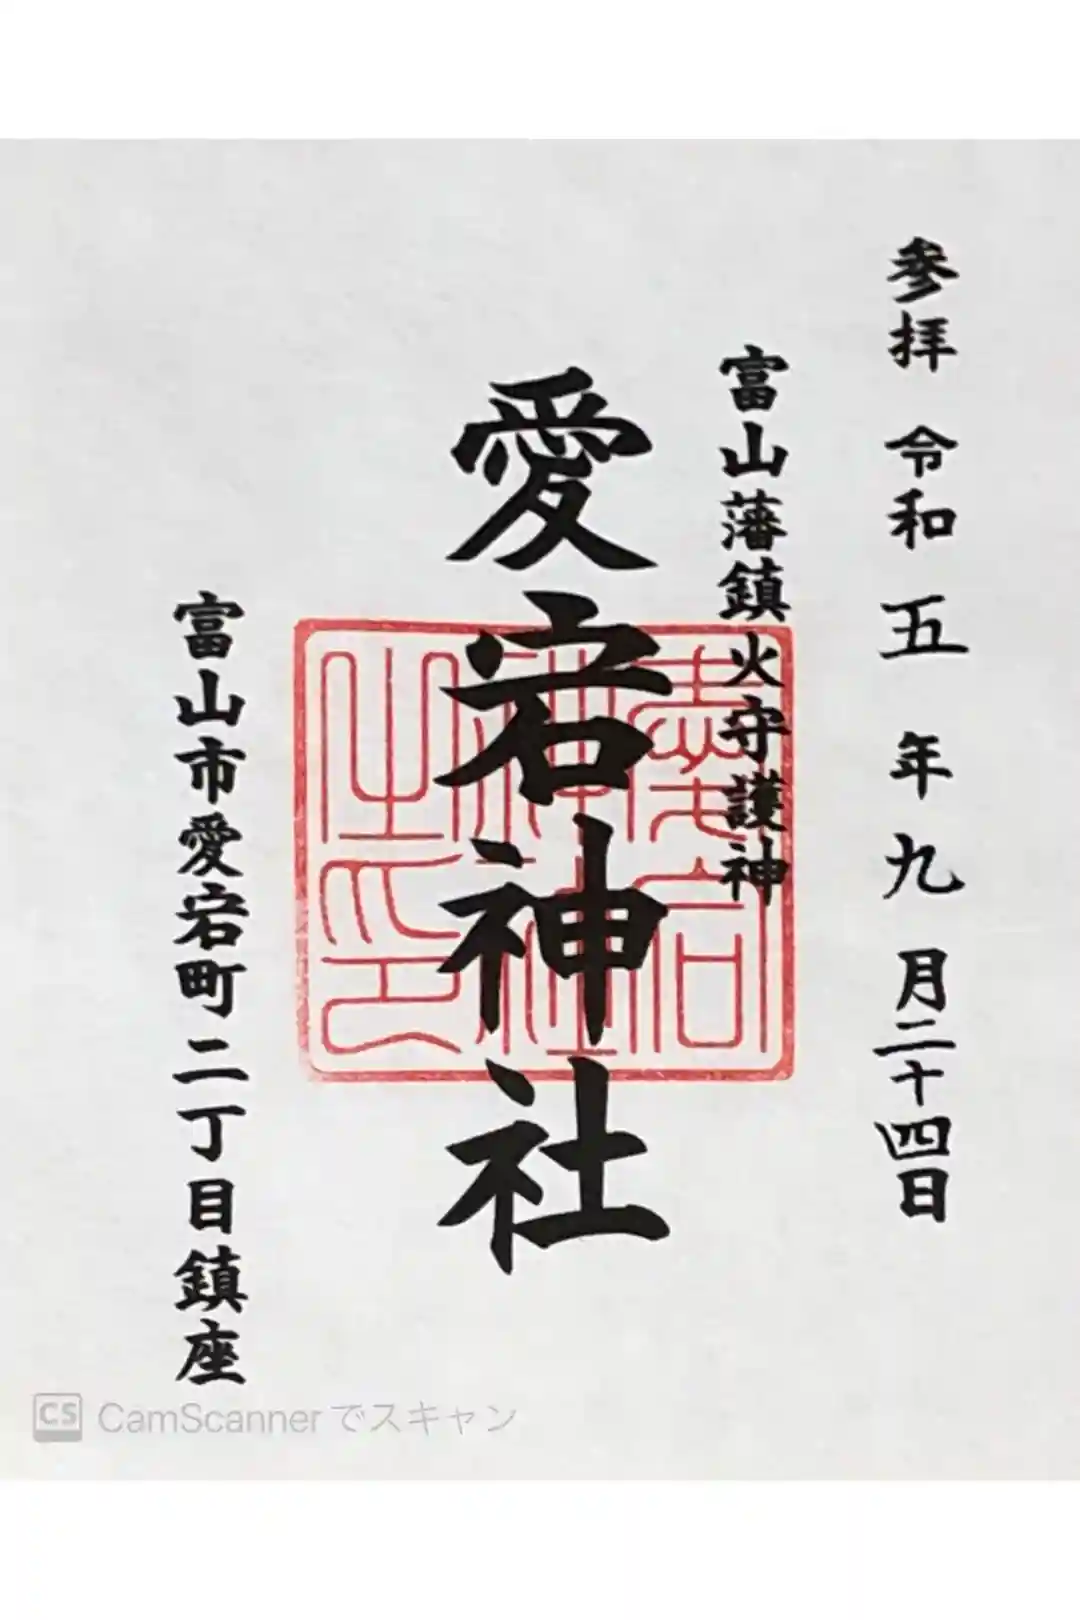 参拝 令和五年九月二十四日
富山藩鎮火守護神
愛宕神社
愛宕神社之印
富山市愛宕町二丁目鎮座
CS CamScannerでスキャン